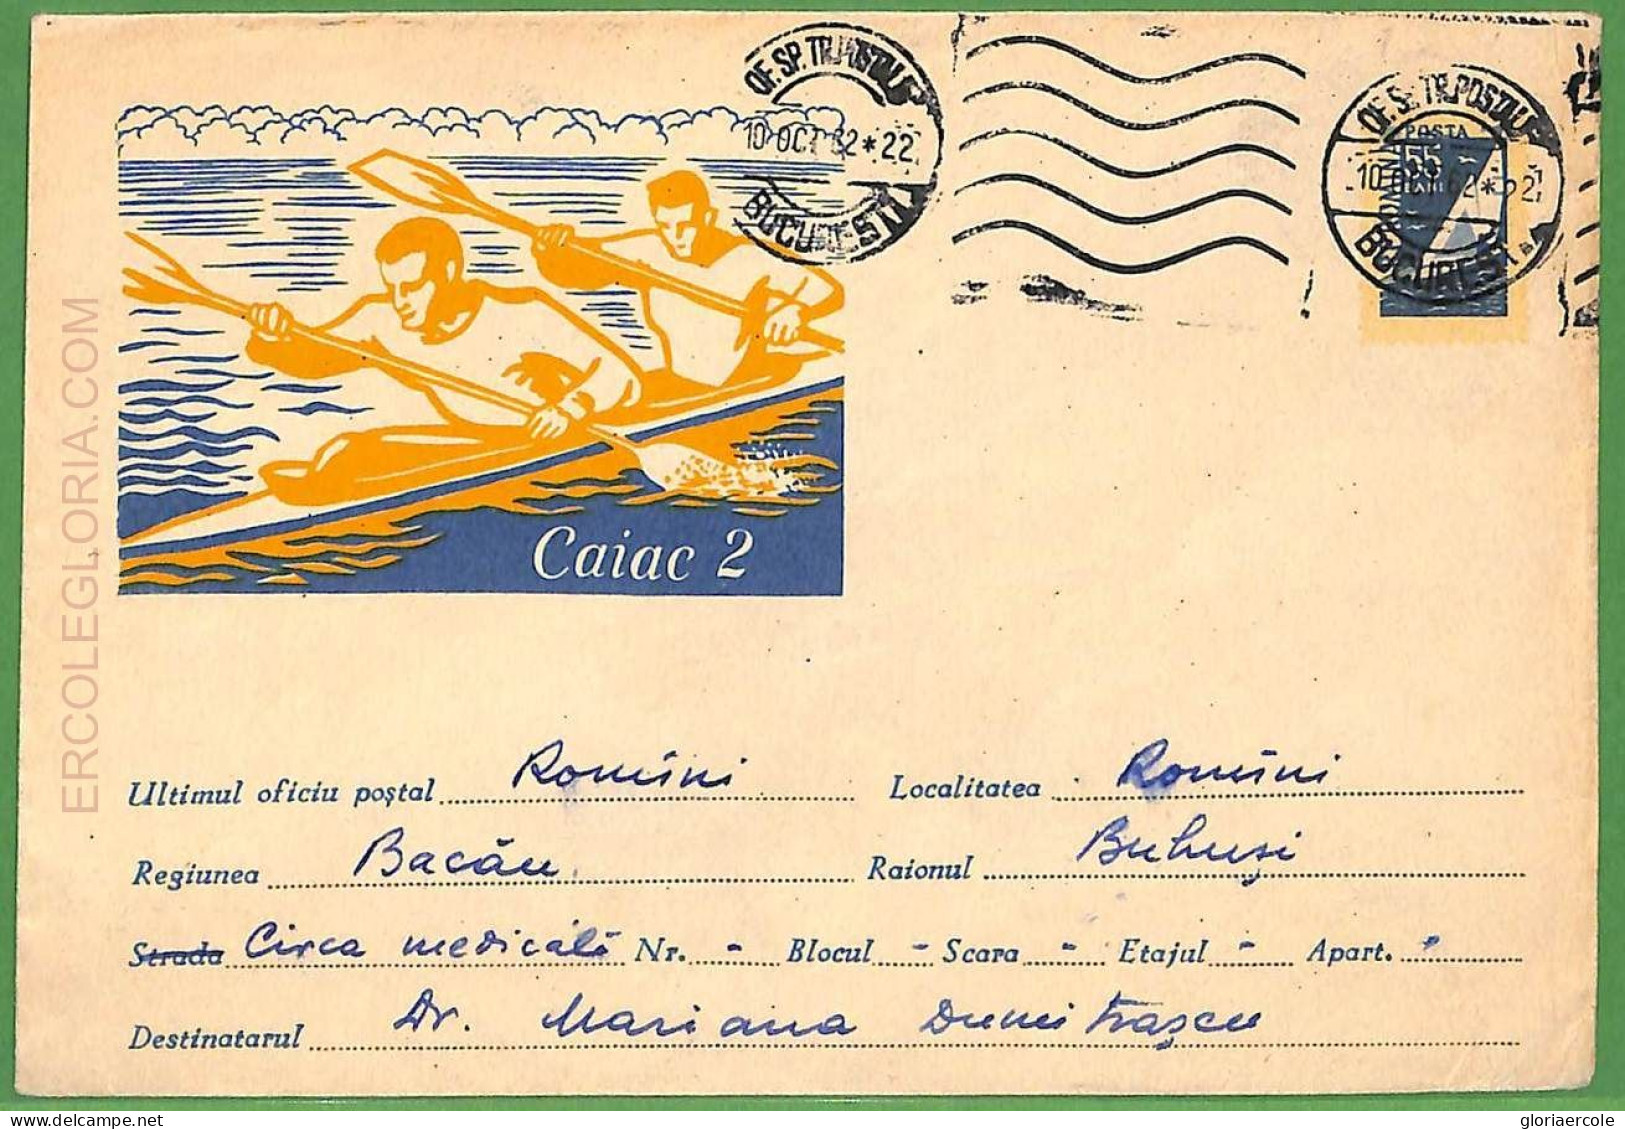 OF. SP. TR. POSTAL
10 OCT 62 * 22
BUCUREȘTI
OF. SP. TR. POSTAL
10 OCT 62 * 22
BUCUREȘTI
POSTA
55
Caiac 2
ERCOLEGLORIA.COM
Ultimul oficiu poștal Romîni Localitatea Romîni
Regiunea Bacău Raionul Buhuși
Strada Circa medicală Nr. - Blocul - Scara - Etajul - Apart. -
Destinatarul Dr. Mariana Dumitrașcu
delcampe.net
gloriaercole